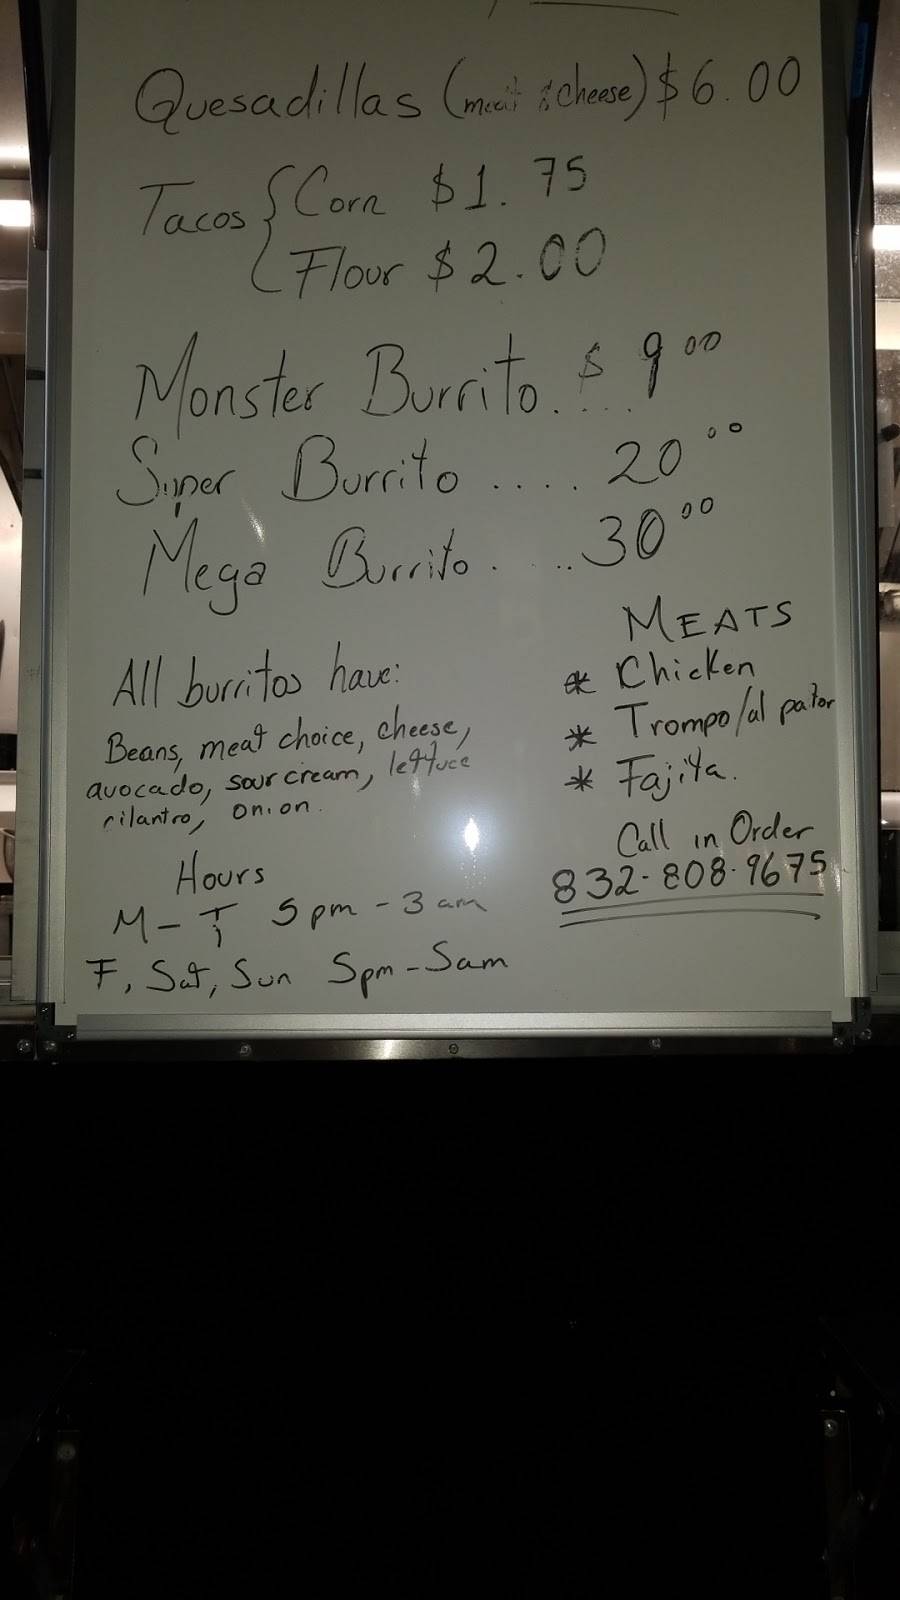 Quesadillas (meat & cheese) $6.00
Tacos { Corn $1.75
Flour $2.00
Monster Burrito. $ 9.00
Super Burrito .... 20.00
Mega Burrito. ...30.00
All burritos have:
Beans, meat choice, cheese,
avocado, sour cream, lettuce
cilantro, onion.
MEATS
* Chicken
* Trompo/al pator
* Fajita.
Call in Order
832-808-9675
Hours
M - T 5pm - 3am
F, Sat, Sun 5pm-5am